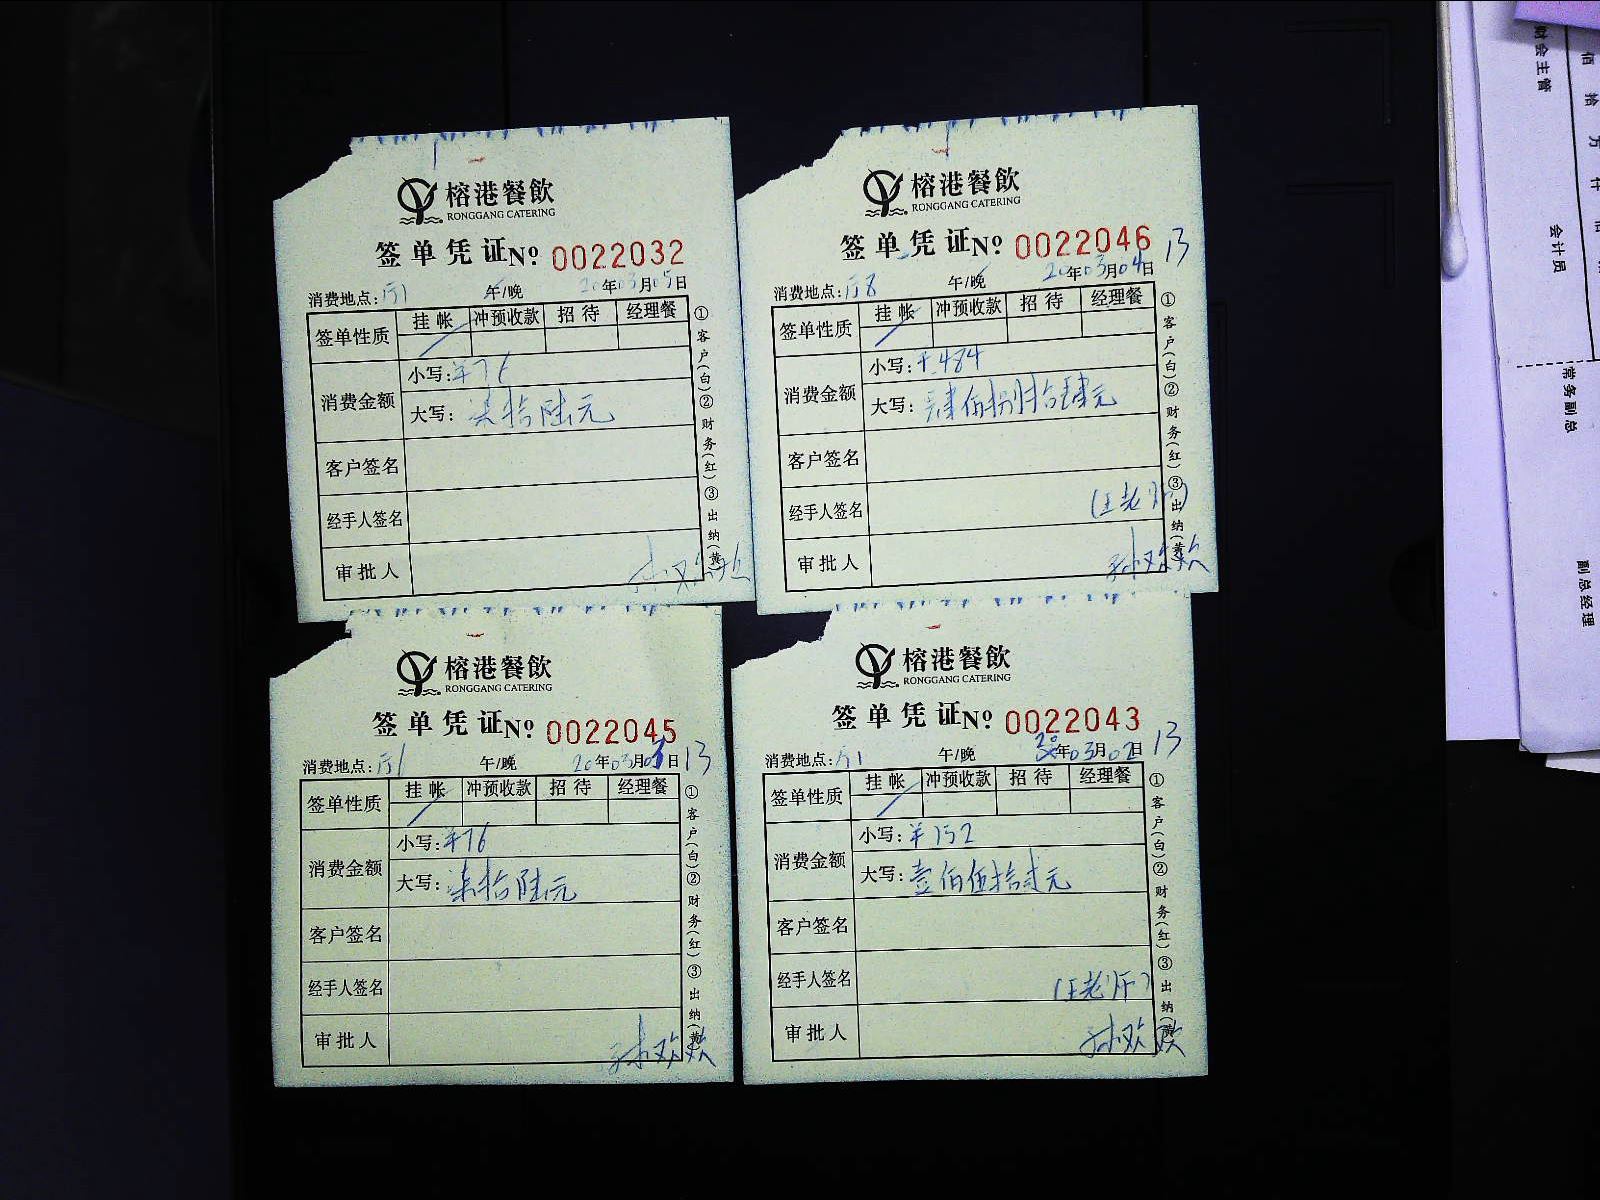 榕港餐飲
RONGGANG CATERING
签单凭证 No 0022032
消费地点: 厅1 午/晚 20年03月05日
签单性质 挂帐 冲预收款 招待 经理餐
消费金额 小写: ¥76
大写: 柒拾陆元
客户签名
经手人签名
审批人 孙欢欢
①客户(白)②财务(红)③出纳(黄)
榕港餐飲
RONGGANG CATERING
签单凭证 No 0022046 13
消费地点: 厅8 午/晚 20年03月04日
签单性质 挂帐 冲预收款 招待 经理餐
消费金额 小写: ¥484
大写: 肆佰捌拾肆元
客户签名
经手人签名 (王老师)
审批人 孙欢欢
①客户(白)②财务(红)③出纳(黄)
榕港餐飲
RONGGANG CATERING
签单凭证 No 0022045
消费地点: 厅1 午/晚 20年03月日 13
签单性质 挂帐 冲预收款 招待 经理餐
消费金额 小写: ¥76
大写: 柒拾陆元
客户签名
经手人签名
审批人 孙欢欢
①客户(白)②财务(红)③出纳(黄)
榕港餐飲
RONGGANG CATERING
签单凭证 No 0022043
消费地点: 厅1 午/晚 20年03月02日 13
签单性质 挂帐 冲预收款 招待 经理餐
消费金额 小写: ¥152
大写: 壹佰伍拾贰元
客户签名
经手人签名 (王老师)
审批人 孙欢欢
①客户(白)②财务(红)③出纳(黄)
财会主管
会计员
常务副总
副总经理
佰拾万仟佰